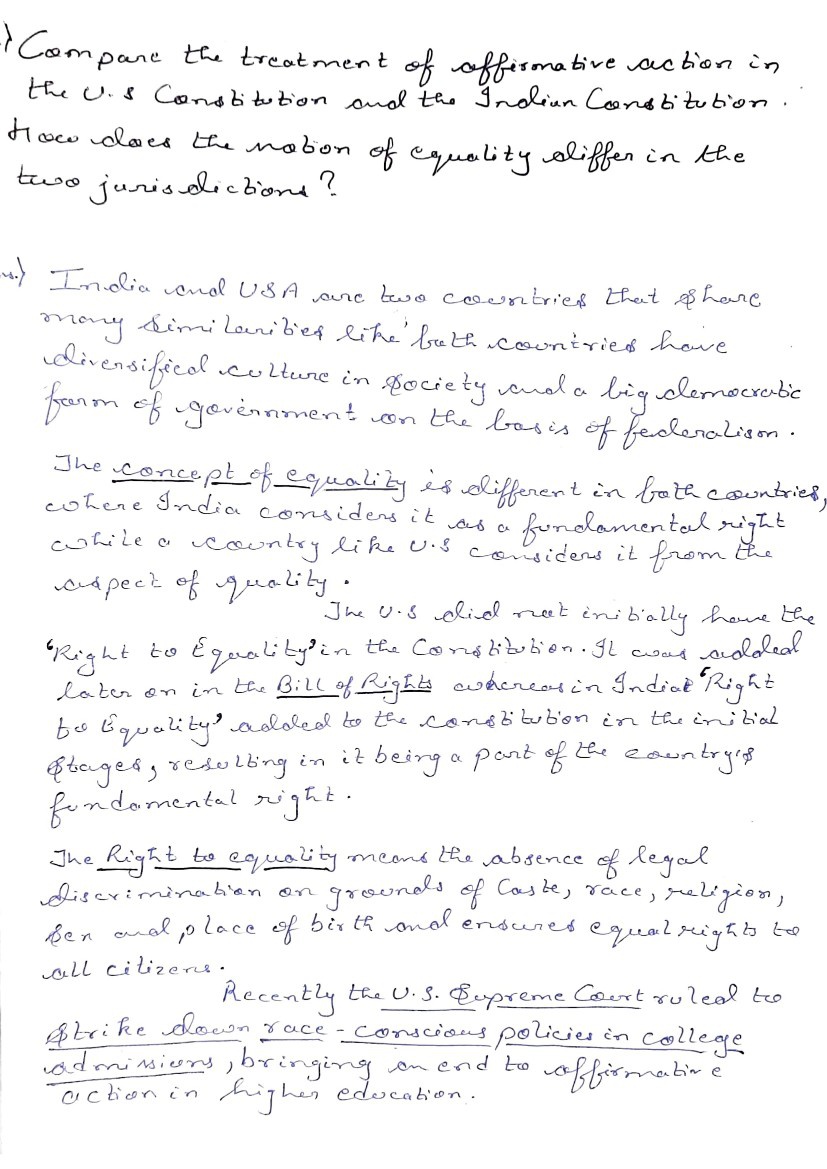 ) Compare the treatment of affirmative action in
the U.S Constitution and the Indian Constitution.
How does the notion of equality differ in the
two jurisdictions?
ns.) India and USA are two countries that share
many similarities like' both countries have
diversified culture in society and a big democratic
form of government on the basis of federalism.
The concept of equality is different in both countries,
where India considers it as a fundamental right
while a country like U.S considers it from the
aspect of quality.
The U.S did not initially have the
'Right to Equality' in the Constitution. It was added
later on in the Bill of Rights whereas in India 'Right
to Equality' added to the constitution in the initial
stages, resulting in it being a part of the country's
fundamental right.
The Right to equality means the absence of legal
discrimination on grounds of Caste, race, religion,
Sex and place of birth and ensures equal rights to
all citizens.
Recently the U.S. Supreme Court ruled to
strike down race-conscious policies in college
admissions, bringing an end to affirmative
action in higher education.